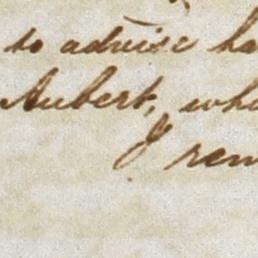 to advise ha
Aubert, whi
I rem